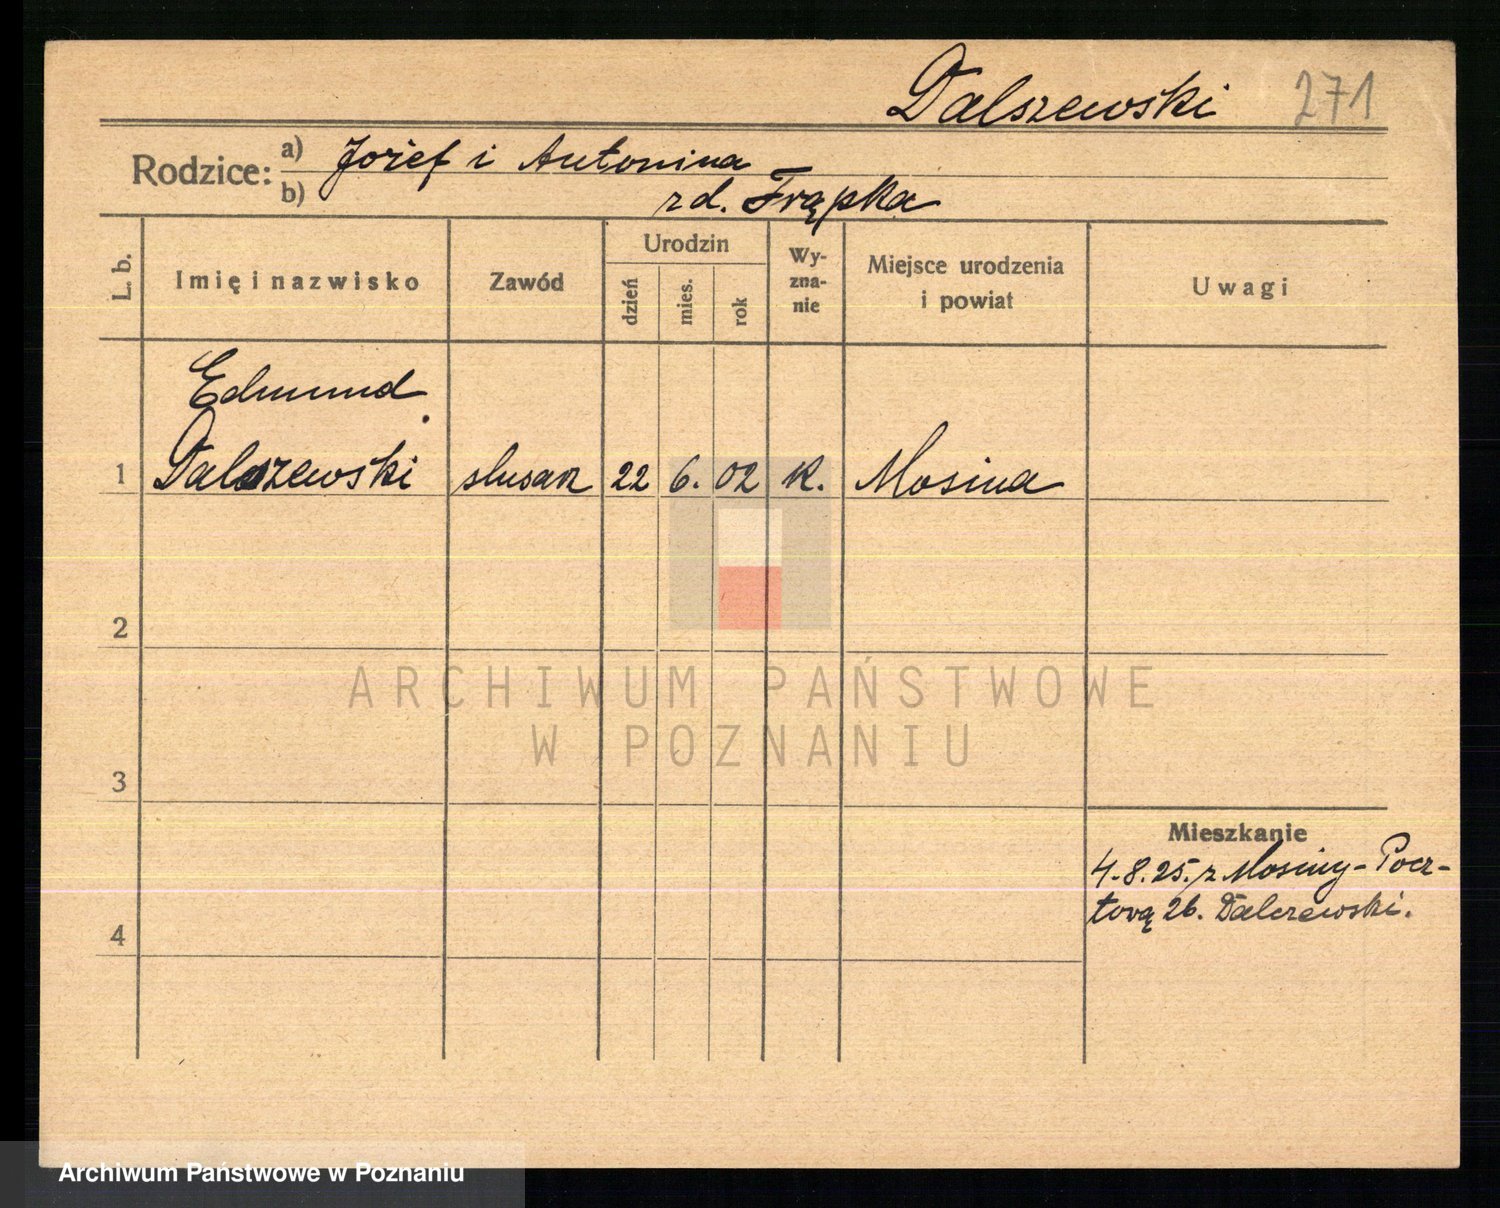 Dalszewski 271
Rodzice: a) Józef i Antonina
b) zd. Frąpka
L. b. Imię i nazwisko Zawód Urodzin dzień mies. rok Wy-zna-nie Miejsce urodzenia i powiat Uwagi
Edmund
1 Dalszewski slusarz 22 6. 02 k. Mosina
2
ARCHIWUM PAŃSTWOWE
W POZNANIU
3
Mieszkanie
4.8.25. z Mosiny - Pocz-
tową 26. Dalczewski.
4
Archiwum Państwowe w Poznaniu